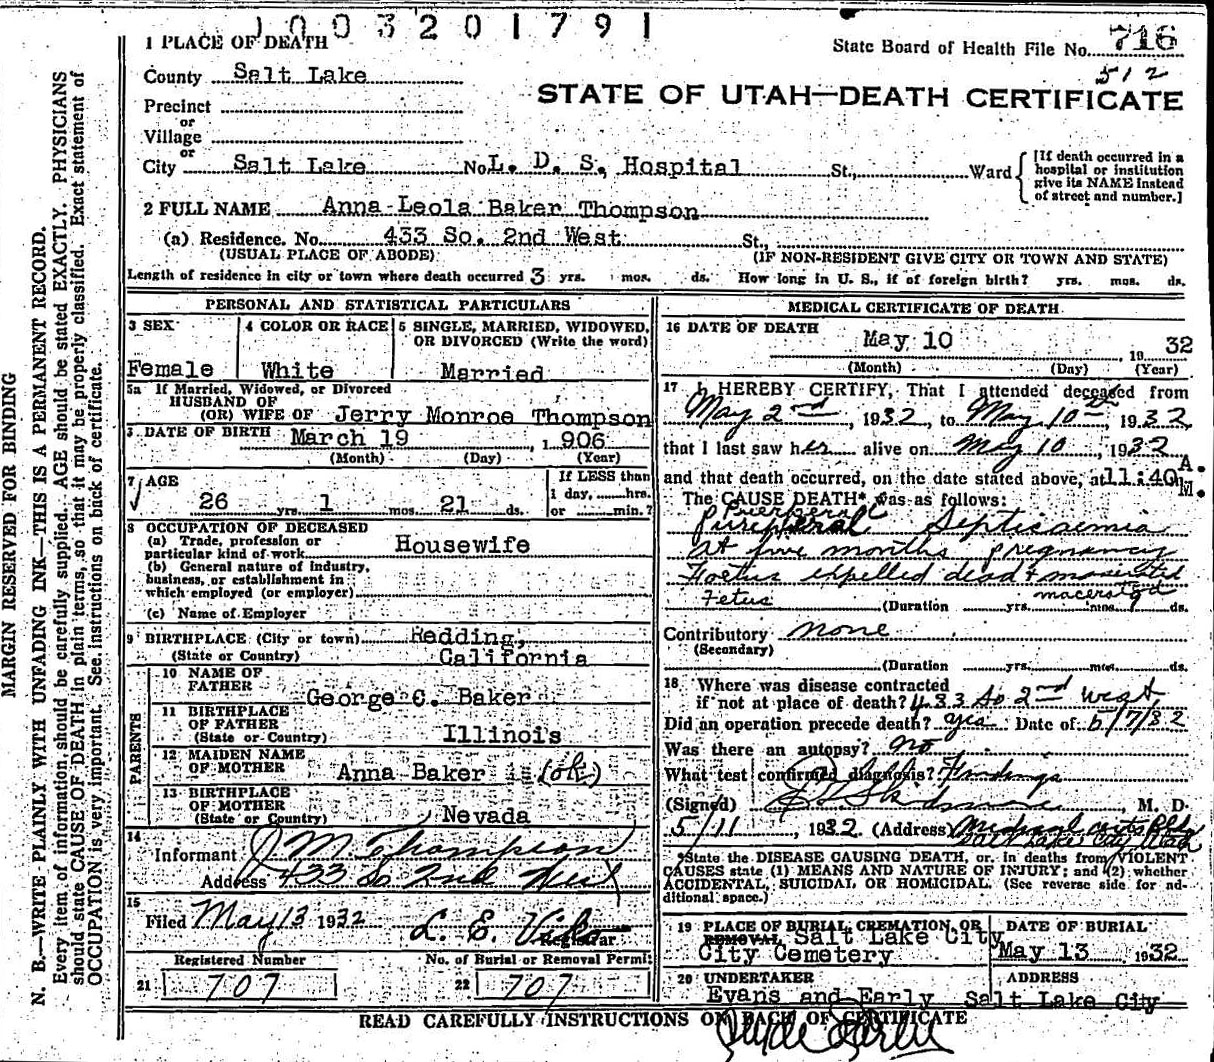 1003201791
1 PLACE OF DEATH
State Board of Health File No. 716
512
County Salt Lake
STATE OF UTAH—DEATH CERTIFICATE
Precinct
or
Village
or
City Salt Lake No. L. D. S. Hospital St., Ward
[If death occurred in a
hospital or institution
give its NAME instead
of street and number.]
2 FULL NAME Anna Leola Baker Thompson
(a) Residence. No. 433 So. 2nd West St.,
(USUAL PLACE OF ABODE) (IF NON-RESIDENT GIVE CITY OR TOWN AND STATE)
Length of residence in city or town where death occurred 3 yrs. mos. ds. How long in U. S., if of foreign birth? yrs. mos. ds.
MARGIN RESERVED FOR BINDING
N. B.—WRITE PLAINLY WITH UNFADING INK—THIS IS A PERMANENT RECORD.
Every item of information should be carefully supplied. AGE should be stated EXACTLY. PHYSICIANS
should state CAUSE OF DEATH in plain terms, so that it may be properly classified. Exact statement of
OCCUPATION is very important. See instructions on back of certificate.
PERSONAL AND STATISTICAL PARTICULARS
3 SEX 4 COLOR OR RACE 5 SINGLE, MARRIED, WIDOWED,
OR DIVORCED (Write the word)
Female White Married
5a If Married, Widowed, or Divorced
HUSBAND OF
(OR) WIFE OF Jerry Monroe Thompson
DATE OF BIRTH March 19, 1906
(Month) (Day) (Year)
7 AGE If LESS than
1 day, hrs.
26 yrs. 1 mos. 21 ds. or min.?
8 OCCUPATION OF DECEASED
(a) Trade, profession or
particular kind of work Housewife
(b) General nature of industry,
business, or establishment in
which employed (or employer)
(c) Name of Employer
9 BIRTHPLACE (City or town) Redding,
(State or Country) California
PARENTS
10 NAME OF
FATHER George C. Baker
11 BIRTHPLACE
OF FATHER
(State or Country) Illinois
12 MAIDEN NAME
OF MOTHER Anna Baker is (ok)
13 BIRTHPLACE
OF MOTHER
(State or Country) Nevada
14
Informant J M Thompson
Address 433 So 2nd West
15
Filed May 13 1932 L. E. Viko
Registrar
Registered Number No. of Burial or Removal Permit
21 707 22 707
MEDICAL CERTIFICATE OF DEATH
16 DATE OF DEATH
May 10, 1932
(Month) (Day) (Year)
17 I HEREBY CERTIFY, That I attended deceased from
May 2nd, 1932, to May 10th, 1932
that I last saw her alive on May 10, 1932
and that death occurred, on the date stated above, at 11:40 A. M.
The CAUSE DEATH* was as follows:
Puerperal
Septicaemia
at five months pregnancy
Foetus expelled dead & macerated
Fetus macerated
(Duration yrs. mos. ds.
Contributory none
(Secondary)
(Duration yrs. mos. ds.
18 Where was disease contracted
if not at place of death? 433 So 2nd West
Did an operation precede death? yes Date of 5/7/32
Was there an autopsy? no
What test confirmed diagnosis? Findings
(Signed) Skidmore, M. D.
5/11, 1932 (Address)
Salt Lake City Utah
*State the DISEASE CAUSING DEATH, or in deaths from VIOLENT
CAUSES state (1) MEANS AND NATURE OF INJURY; and (2) whether
ACCIDENTAL, SUICIDAL OR HOMICIDAL. (See reverse side for ad-
ditional space.)
19 PLACE OF BURIAL, CREMATION, OR
REMOVAL Salt Lake City
City Cemetery
DATE OF BURIAL
May 13, 1932
20 UNDERTAKER ADDRESS
Evans and Early Salt Lake City
READ CAREFULLY INSTRUCTIONS ON BACK OF CERTIFICATE